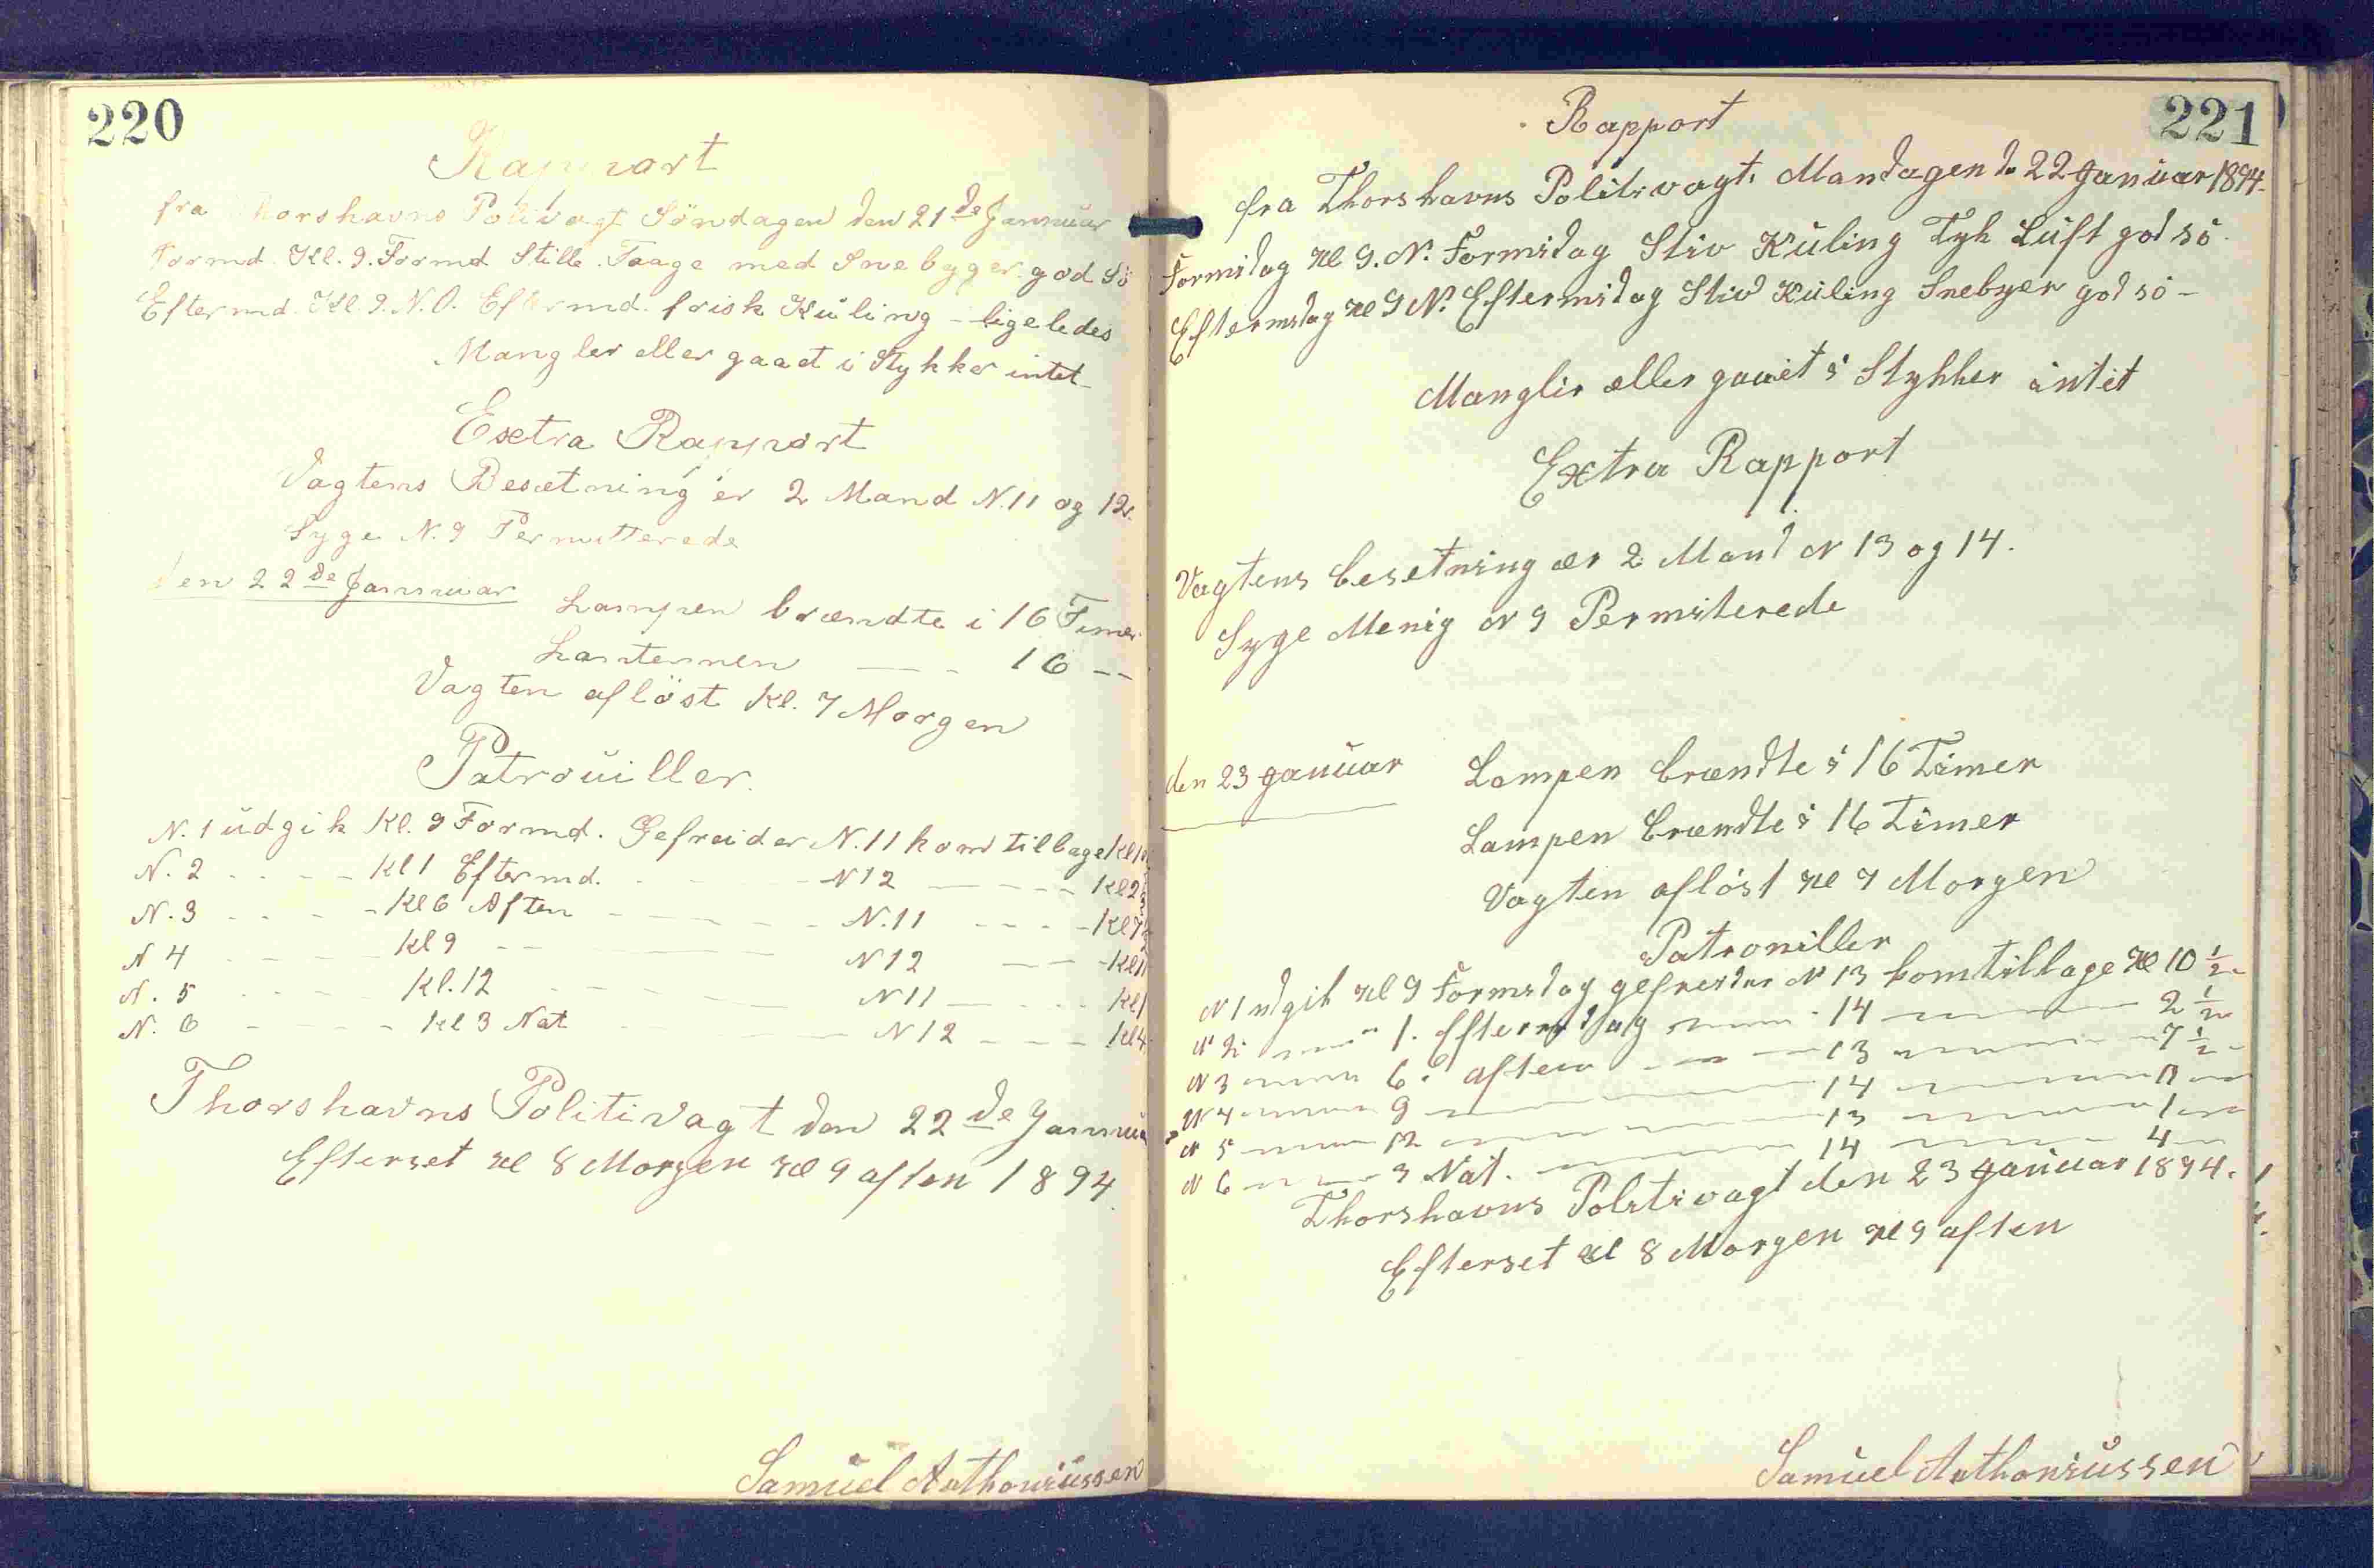 220
Rapport
fra Thorshavns Politivagt Söndagen den 21de Januar
Formd. Kl. 9. Formd Stille. Taage med Snebyger god Sö
Eftermd. Kl. 9. N.O. Eftermd. frisk Kuling - ligeledes
Mangler eller gaaet i Stykker intet
Extra Rapport
Vagtens Besætning er 2 Mand N. 11 og 12.
Syge N. 9 Permitterede
den 22de Januar Lampen brændte i 16 Timer
Lanternen — - 16 --
Vagten aflöst Kl. 7 Morgen
Patrouiller.
N. 1 udgik Kl. 9 Formd. Gefreider N. 11 kom tilbage Kl 10
N. 2 - - - - Kl 1 Eftermd. - - - N 12 - - - - Kl 2½
N. 3 - - - - Kl 6 Aften - - - - N. 11 - - - - Kl 7½
N 4 - - - - Kl 9 - - - - N 12 - - - Kl 11
N. 5 - - - - Kl. 12 - - - - N 11 - - - - Kl 1
N. 6 - - - - Kl 3 Nat - - - - N 12 - - - - Kl 4
Thorshavns Politivagt den 22de Januar
Efterset Kl 8 Morgen Kl 9 aften 1894.
Samuel Anthoniussen
221
Rapport
fra Thorshavns Politivagt. Mandagen d. 22 Januar 1894.
Formidag Kl 9. N. Formidag Stiv Kuling Tyk Luft god sö.
Eftermidag Kl 9 N. Eftermidag Stiv Kuling Snebyer god sö -
Mangler æller gaaet i Stykker intet
Extra Rapport
Vagtens besetning ær 2 Mand N 13 og 14.
Syge Menig N 9 Permiterede
den 23 Januar Lampen brændte i 16 Timer
Lampen brændte i 16 Timer
Vagten aflöst Kl 7 Morgen
Patroniller
N 1 udgik Kl 9 Formidag gefreider N 13 kom tilbage Kl 10 ½ -
N 2 - - - " 1. Eftermidag - - - 14 - - - 2 ½
N 3 - - - 6. aften - - - 13 - - - 7 ½ -
N 4 - - - 9 - - - 14 - - - 11 -
N 5 - - - 12 - - - 13 - - - 1 -
N 6 - - - 3 Nat. - - - 14 - - - 4 -
Thorshavns Politivagt den 23 Januar 1894.
Efterset Kl 8 Morgen Kl 9 aften
Samuel Anthoniussen